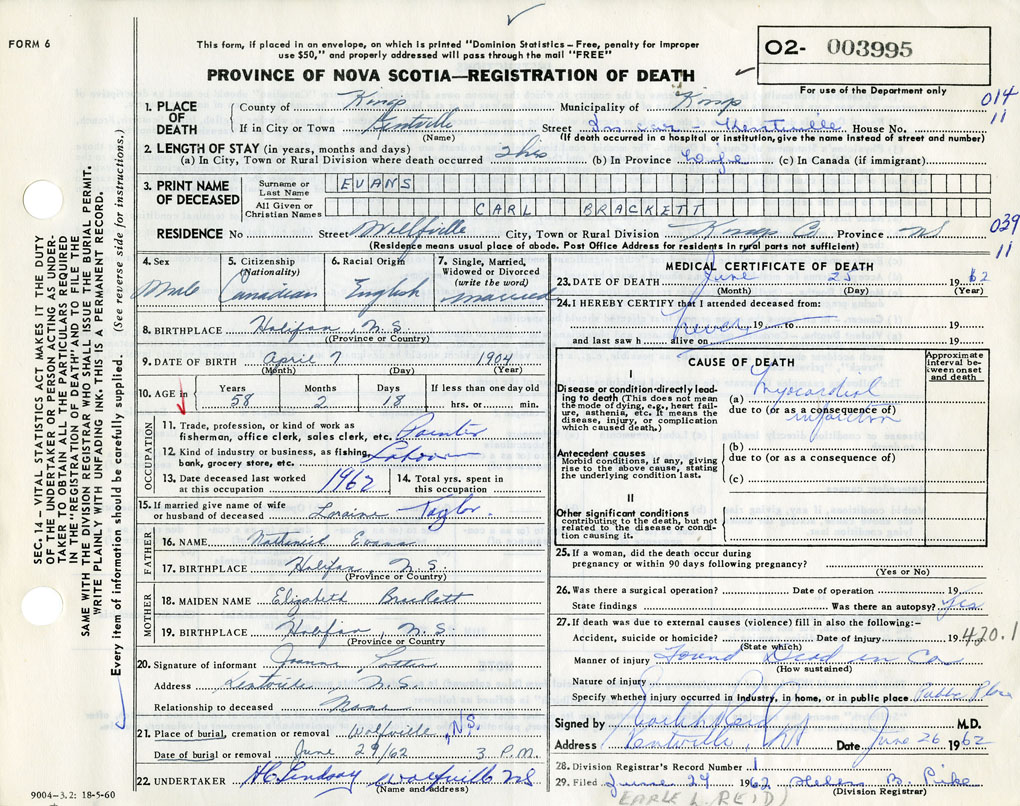 FORM 6
This form, if placed in an envelope, on which is printed "Dominion Statistics – Free, penalty for improper
use $50," and properly addressed will pass through the mail "FREE"
PROVINCE OF NOVA SCOTIA—REGISTRATION OF DEATH
O2- 003995
For use of the Department only
014
11
1. PLACE OF DEATH
County of Kings Municipality of Kings
If in City or Town Kentville Street In car - Kentville House No.
(Name) (If death occurred in hospital or institution, give name instead of street and number)
2. LENGTH OF STAY (in years, months and days)
(a) In City, Town or Rural Division where death occurred (b) In Province Life (c) In Canada (if immigrant)
3. PRINT NAME OF DECEASED
Surname or Last Name EVANS
All Given or Christian Names CARL BRACKETT
RESIDENCE No Street City, Town or Rural Division Kings Co Province NS
039
11
(Residence means usual place of abode. Post Office Address for residents in rural parts not sufficient)
4. Sex Male
5. Citizenship (Nationality) Canadian
6. Racial Origin English
7. Single, Married, Widowed or Divorced (write the word) married
8. BIRTHPLACE Halifax, N.S.
(Province or Country)
9. DATE OF BIRTH April 7 1904
(Month) (Day) (Year)
10. AGE in Years 58 Months 2 Days 18 If less than one day old hrs. or min.
OCCUPATION
11. Trade, profession, or kind of work as
fisherman, office clerk, sales clerk, etc. Painter
12. Kind of industry or business, as fishing,
bank, grocery store, etc. Labour
13. Date deceased last worked
at this occupation 1962
14. Total yrs. spent in
this occupation
15. If married give name of wife
or husband of deceased Loraine Taylor.
FATHER
16. NAME Evans
17. BIRTHPLACE Halifax, N.S.
(Province or Country)
MOTHER
18. MAIDEN NAME Elizabeth Brackett
19. BIRTHPLACE Halifax, N.S.
(Province or Country)
20. Signature of informant
Address Kentville, N.S.
Relationship to deceased None
21. Place of burial, cremation or removal Wolfville, N.S.
Date of burial or removal June 29/62 3 P.M.
22. UNDERTAKER H.C. Lindsay Wolfville NS
(Name and address)
9004-3.2: 18-5-60
MEDICAL CERTIFICATE OF DEATH
23. DATE OF DEATH June 25 1962
(Month) (Day) (Year)
24. I HEREBY CERTIFY that I attended deceased from:
Never 19 to 19
and last saw h alive on 19
CAUSE OF DEATH
Approximate interval between onset and death
I
Disease or condition directly leading to death (This does not mean the mode of dying, e.g., heart failure, asthenia, etc. It means the disease, injury, or complication which caused death.)
(a) Myocardial
due to (or as a consequence of)
infarction
Antecedent causes
Morbid condition, if any, giving rise to the above cause, stating the underlying condition last.
(b)
due to (or as a consequence of)
(c)
II
Other significant conditions
contributing to the death, but not related to the disease or condition causing it.
25. If a woman, did the death occur during
pregnancy or within 90 days following pregnancy?
(Yes or No)
26. Was there a surgical operation? Date of operation 19
State findings Was there an autopsy? Yes.
27. If death was due to external causes (violence) fill in also the following:-
Accident, suicide or homicide? Date of injury 19
(State which)
420.1
Manner of injury Found Dead in Car
(How sustained)
Nature of injury
Specify whether injury occurred in Industry, in home, or in public place Public Place
Signed by M.D.
Address Kentville, NS Date June 26 1962
28. Division Registrar's Record Number 1
29. Filed June 29 1962 Helen B. Pike
(Division Registrar)
(EARLE L. REID)
SEC. 14 – VITAL STATISTICS ACT MAKES IT THE DUTY
OF THE UNDERTAKER OR PERSON ACTING AS UNDER-
TAKER TO OBTAIN ALL THE PARTICULARS REQUIRED
IN THE "REGISTRATION OF DEATH" AND TO FILE THE
SAME WITH THE DIVISION REGISTRAR WHO SHALL ISSUE THE BURIAL PERMIT.
WRITE PLAINLY WITH UNFADING INK. THIS IS A PERMANENT RECORD.
Every item of information should be carefully supplied. (See reverse side for instructions.)